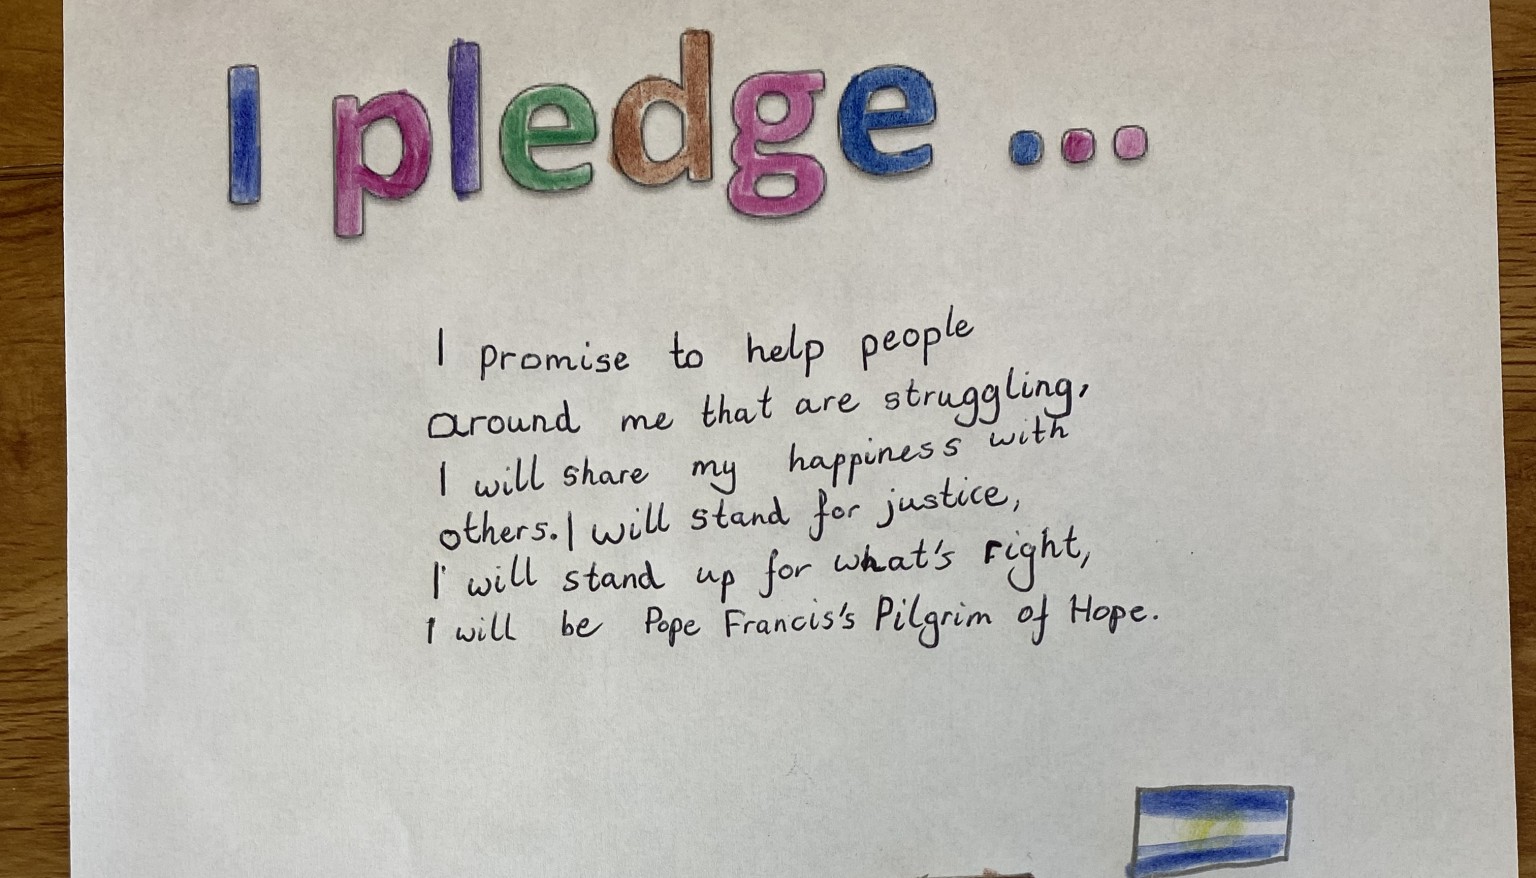 I pledge...
I promise to help people
around me that are struggling,
I will share my happiness with
others. I will stand for justice,
I will stand up for what's right,
I will be Pope Francis's Pilgrim of Hope.